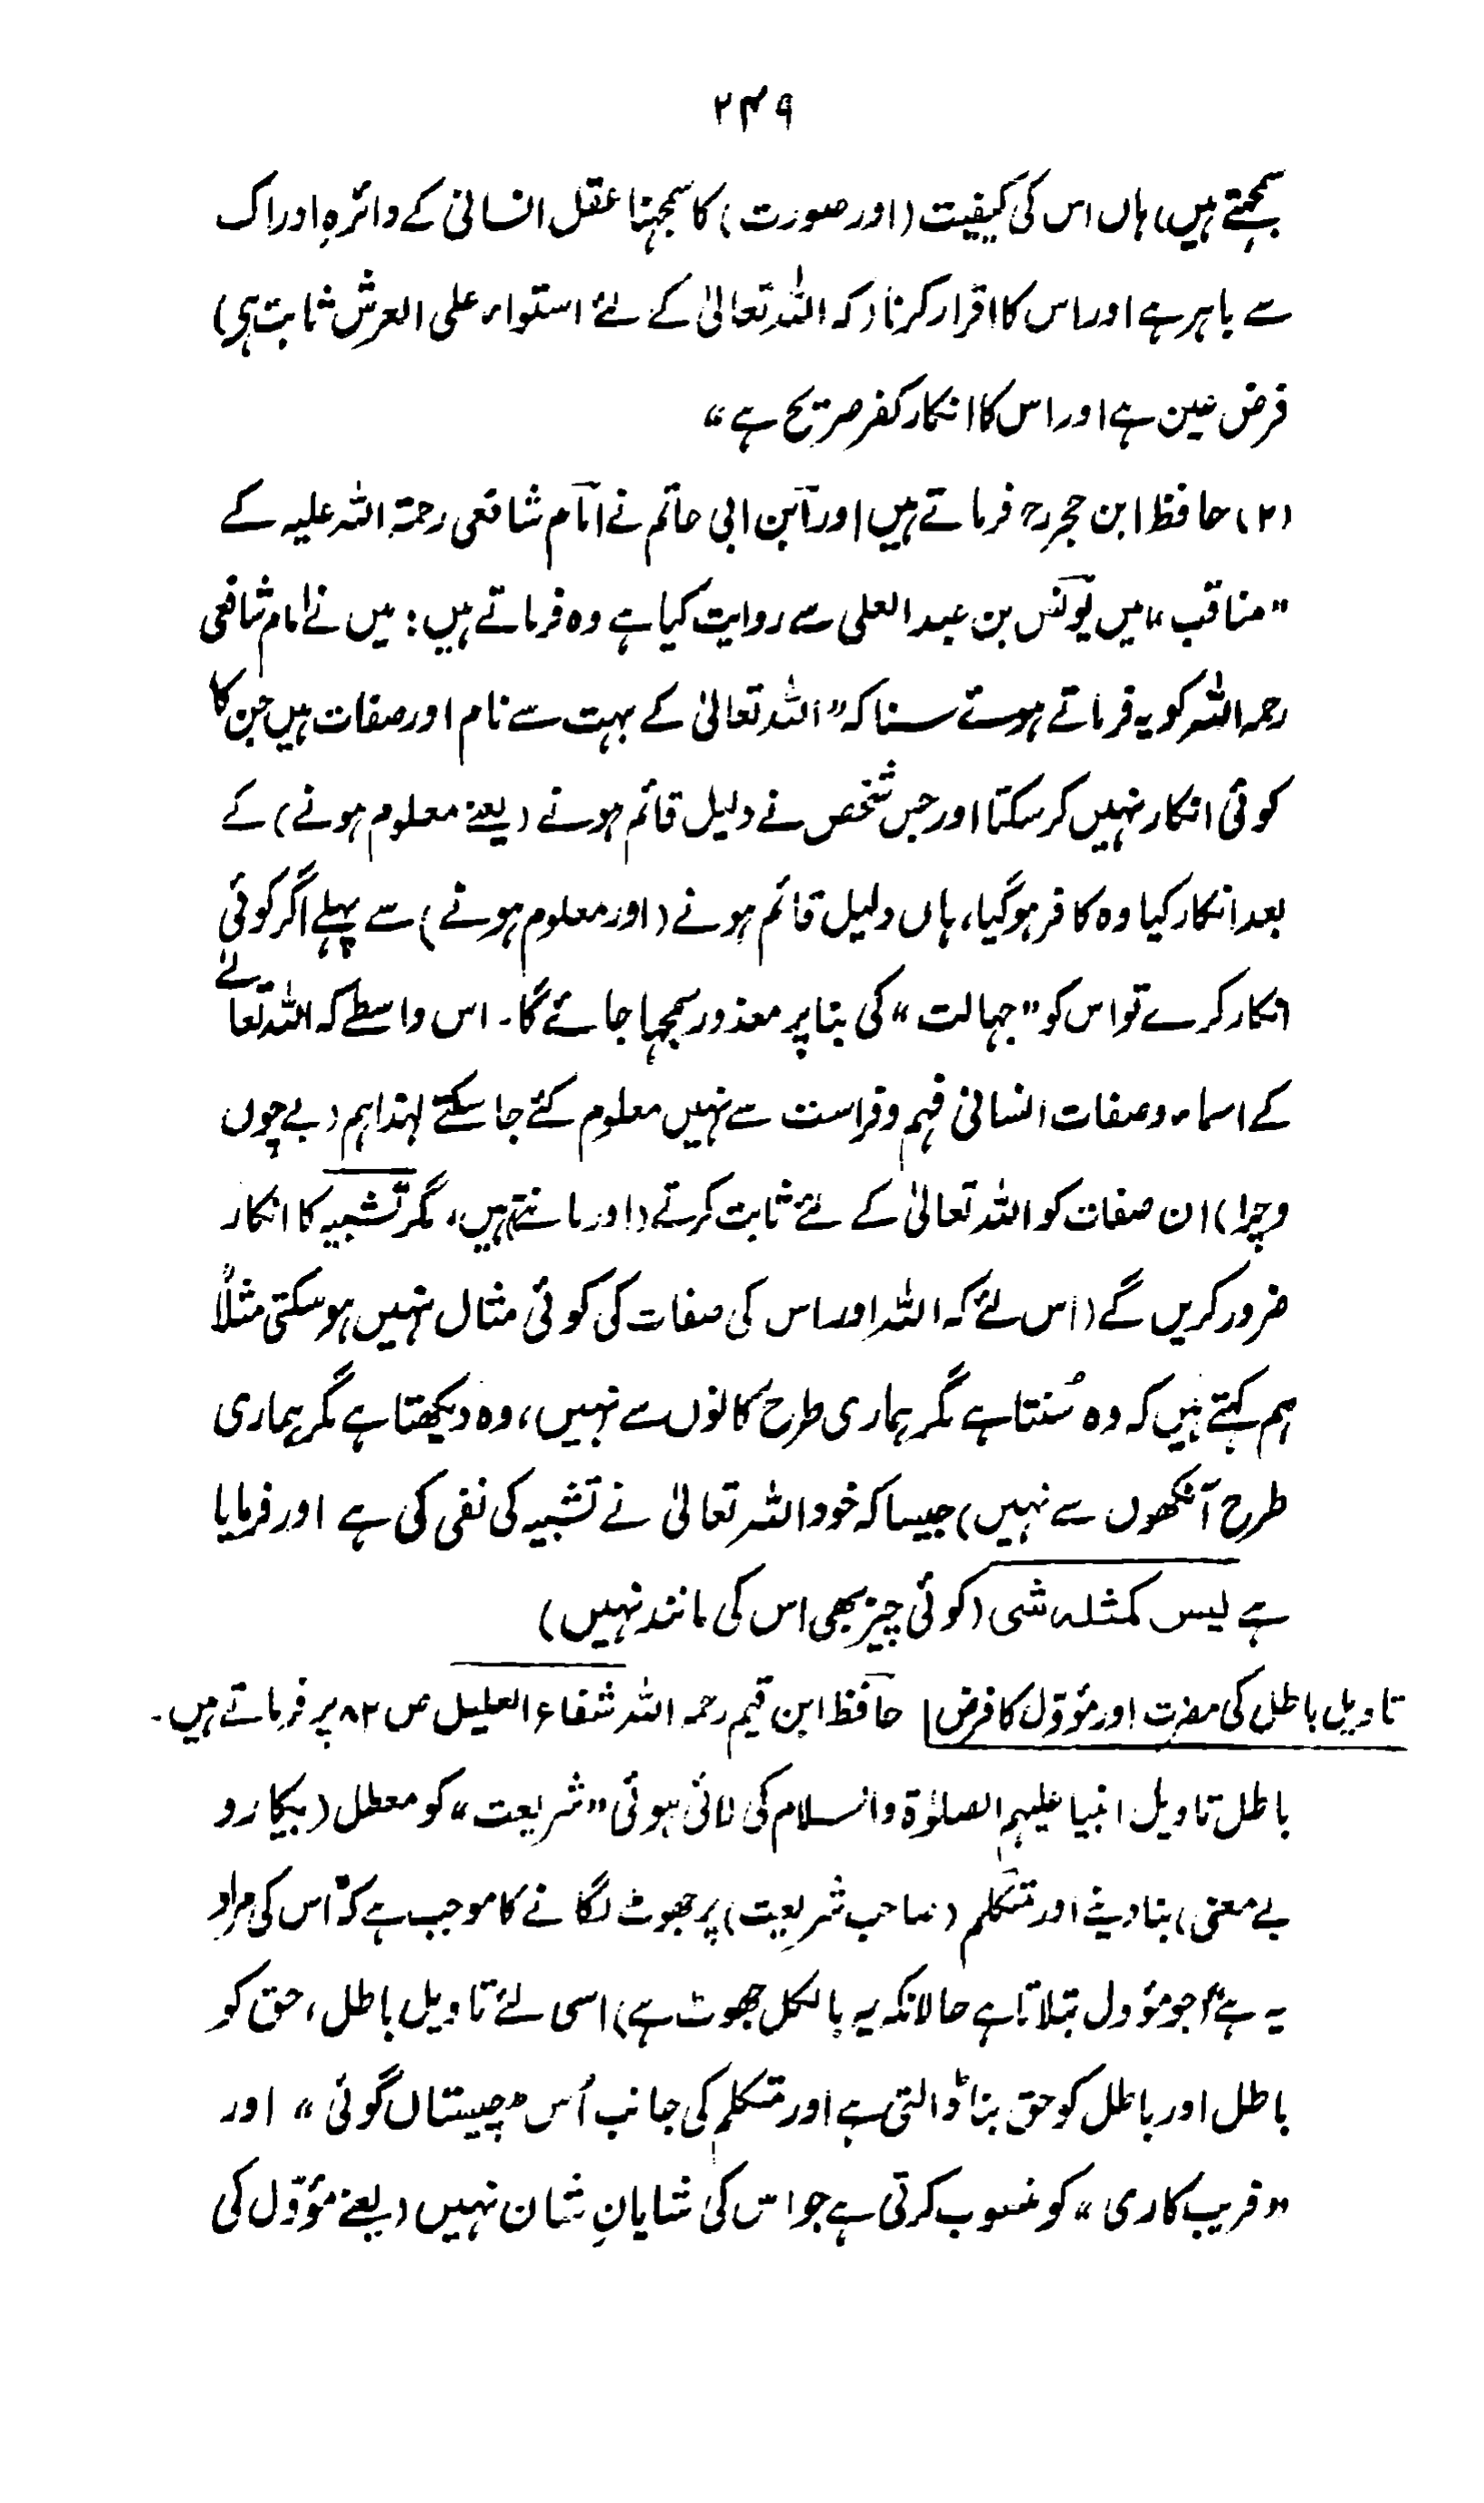 ۲۴۹
سمجھتے ہیں، ہاں اس کی کیفیت (اور صورت) کا سمجھنا عقل انسانی کے دائرہِ ادراک
سے باہر ہے اور اس کا اقرار کرنا (کہ اللہ تعالیٰ کے لئے استواء علی العرش ثابت ہی)
فرض عین ہے اور اس کا انکار کفر صریح ہے“
(۲) حافظ ابن حجرؒ فرماتے ہیں اور ابن ابی حاتم نے امام شافعی رحمۃ اللہ علیہ کے
”مناقب“ میں یونس بن عبد العلی سے روایت کیا ہے وہ فرماتے ہیں: میں نے امام شافعی
رحمہ اللہ کو یہ فرماتے ہوئے سنا کہ ”اللہ تعالیٰ کے بہت سے نام اور صفات ہیں جن کا
کوئی انکار نہیں کر سکتا اور جس شخص نے دلیل قائم ہونے (یعنے معلوم ہونے) کے
بعد انکار کیا وہ کافر ہو گیا، ہاں دلیل قائم ہونے (اور معلوم ہونے) سے پہلے اگر کوئی
انکار کرے تو اس کو ”جہالت“ کی بنا پر معذور سمجھا جائے گا۔ اس واسطے کہ اللہ تعالےٰ
کے اسماء و صفات انسانی فہم و فراست سے نہیں معلوم کئے جا سکتے لہٰذا ہم (بے چوں
و چرا) ان صفات کو اللہ تعالیٰ کے لئے ثابت کرتے (اور مانتے ہیں، مگر تشبیہ کا انکار
ضرور کریں گے (اس لئے کہ اللہ اور اس کی صفات کی کوئی مثال نہیں ہو سکتی مثلاً
ہم کہتے ہیں کہ وہ سُنتا ہے مگر ہماری طرح کانوں سے نہیں، وہ دیکھتا ہے مگر ہماری
طرح آنکھوں سے نہیں) جیسا کہ خود اللہ تعالیٰ نے تشبیہ کی نفی کی ہے اور فرمایا
ہے لیس کمثلہ شی (کوئی چیز بھی اس کی مانند نہیں)
تاویل باطل کی مضرت اور مؤوّل کا فرض حافظ ابن قیم رحمہ اللہ شفاء العلیل ص ۸۲ پر فرماتے ہیں۔
باطل تاویل انبیا علیہم الصلوٰۃ والسلام کی لائی ہوئی ”شریعت“ کو معطل (بیکار و
بے معنی) بنا دینے اور متکلم (صاحب شریعت) پر جھوٹ لگانے کا موجب ہے کہ ”اس کی مراد
یہ ہے“ (جو مؤول بتلاتا ہے حالانکہ یہ بالکل جھوٹ ہے) اسی لئے تاویل باطل، حق کو
باطل اور باطل کو حق بنا ڈالتی ہے اور متکلم کی جانب اُس ”چیستاں گوئی“ اور
”فریب کاری“ کو منسوب کرتی ہے جو اس کی شایانِ شان نہیں (یعنے مؤوّل کی